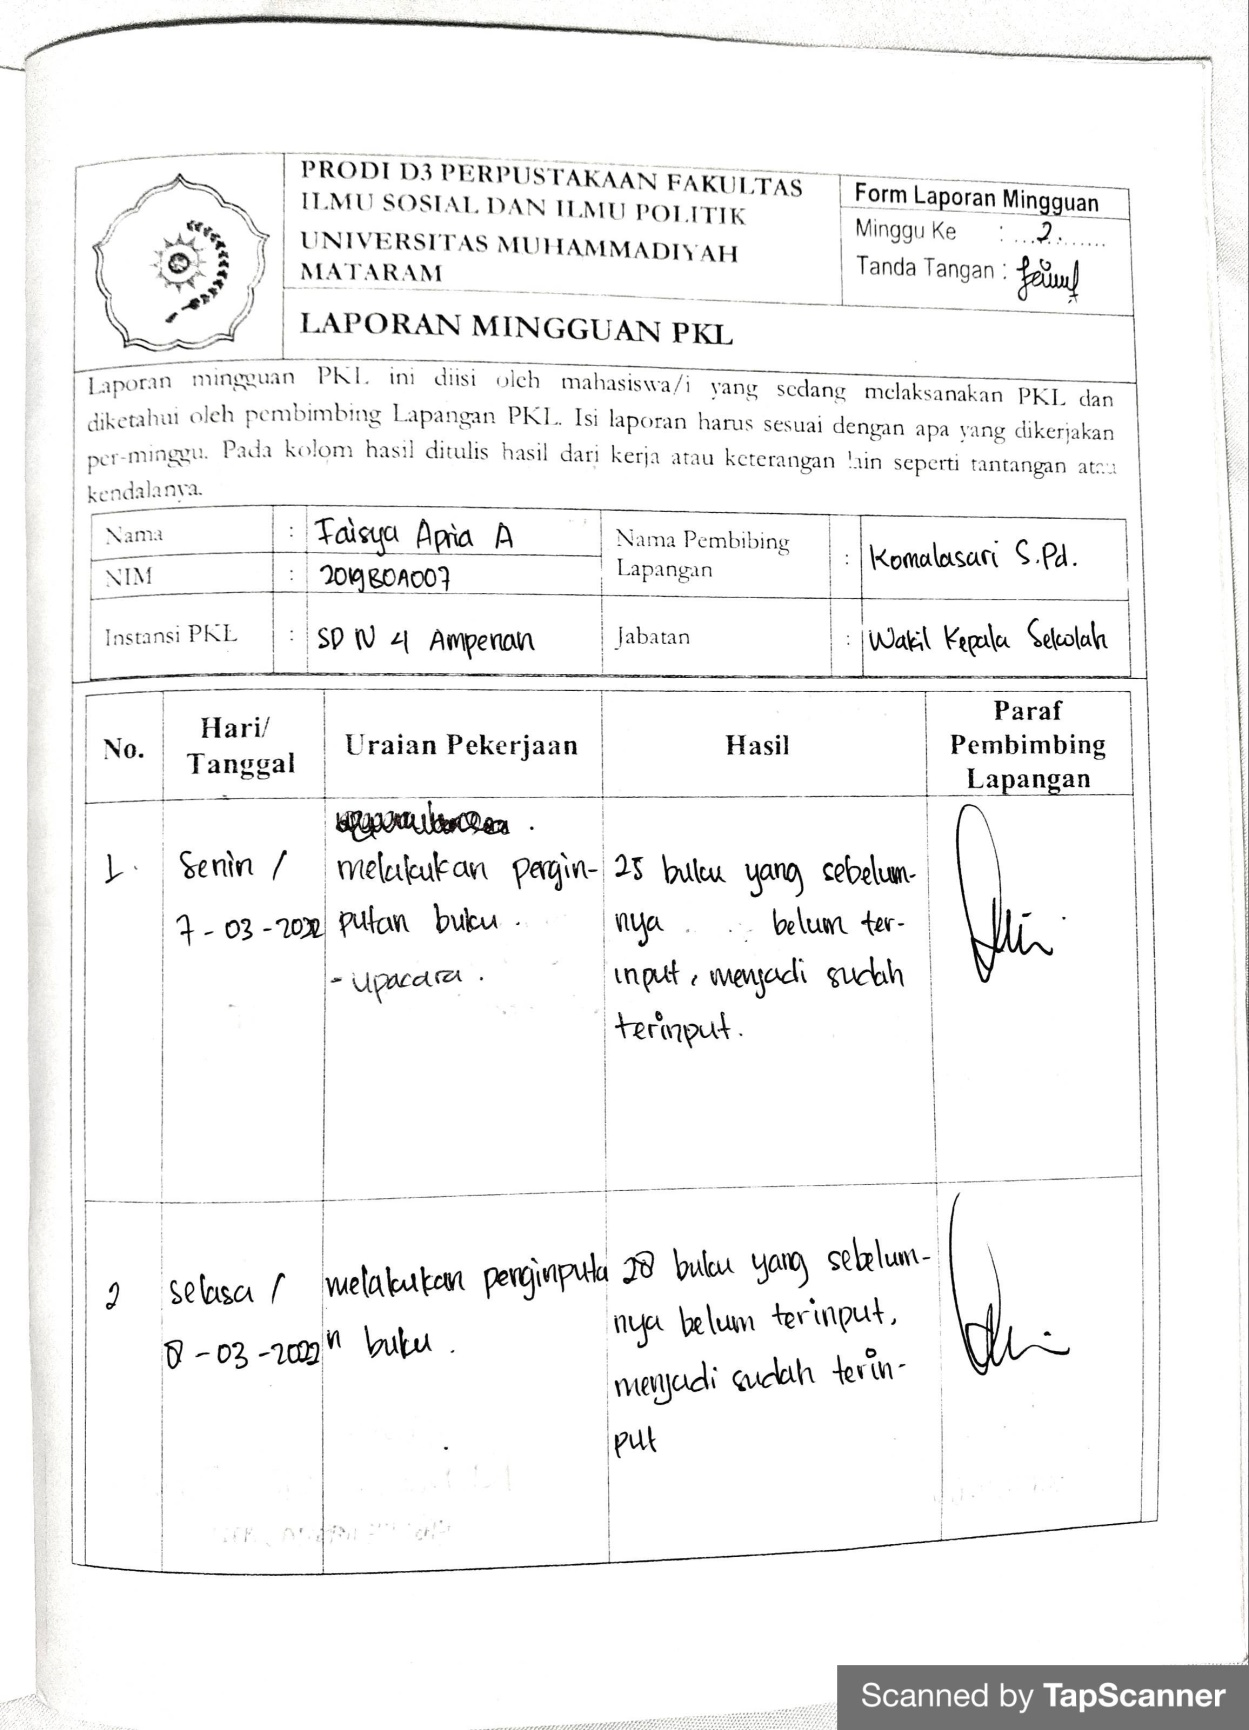 PRODI D3 PERPUSTAKAAN FAKULTAS
ILMU SOSIAL DAN ILMU POLITIK
UNIVERSITAS MUHAMMADIYAH
MATARAM
LAPORAN MINGGUAN PKL
Form Laporan Mingguan
Minggu Ke : ...2.........
Tanda Tangan :
Laporan mingguan PKL ini diisi oleh mahasiswa/i yang sedang melaksanakan PKL dan
diketahui oleh pembimbing Lapangan PKL. Isi laporan harus sesuai dengan apa yang dikerjakan
per-minggu. Pada kolom hasil ditulis hasil dari kerja atau keterangan lain seperti tantangan atau
kendalanya.
Nama : Faisya Apria A
NIM : 2019B0A007
Nama Pembibing
Lapangan : Komalasari S.Pd.
Instansi PKL : SD N 4 Ampenan
Jabatan : Wakil Kepala Sekolah
No.
Hari/
Tanggal
Uraian Pekerjaan
Hasil
Paraf
Pembimbing
Lapangan
1.
Senin /
7-03-2022
melakukan pergin-
putan buku.
- upacara.
25 buku yang sebelum-
nya belum ter-
input, menjadi sudah
terinput.
2
Selasa /
8-03-2022
melakukan penginputa
n buku.
28 buku yang sebelum-
nya belum terinput,
menjadi sudah terin-
put
Scanned by TapScanner